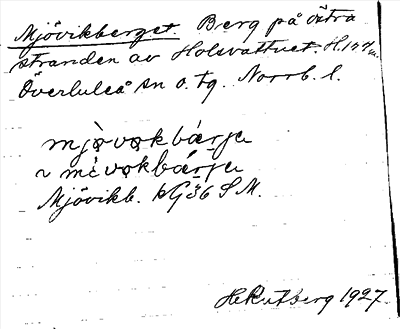 Mjövikberget. Berg på östra
stranden av Holsvattnet. H. 177 m.
Överluleå sn o. tg. Norrb. l.
mjövǫkbárjɛ
~ mèvǫkbárjɛ
Mjövikb. kG36 S M.
H Rutberg 1927